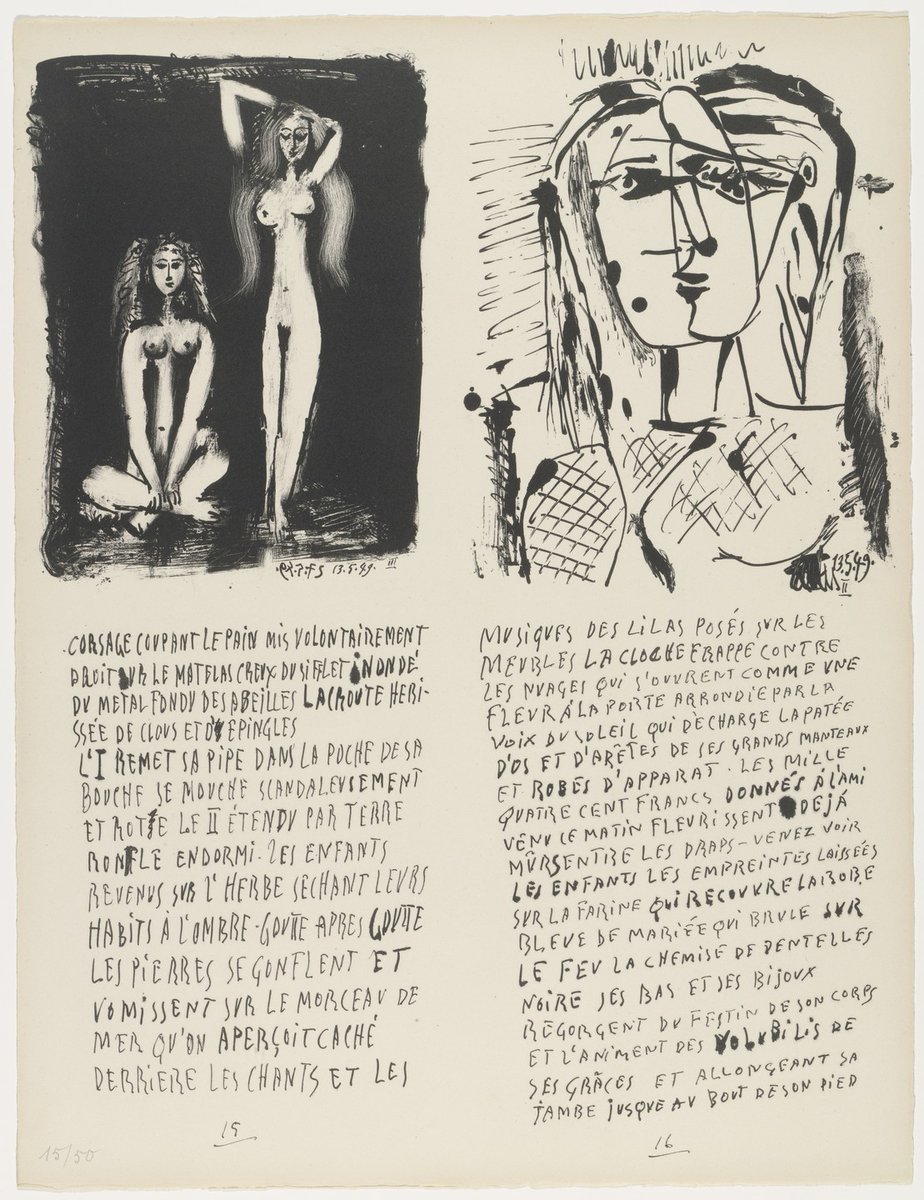 13.5.49.
III
13.5.49.
II
CORSAGE COUPANT LE PAIN MIS VOLONTAIREMENT
DROIT SUR LE MATELAS CREUX DU SIFLET INONDÉ
DU METAL FONDU DES ABEILLES LA CROUTE HERI-
SSÉE DE CLOUS ET D'EPINGLES
L'I REMET SA PIPE DANS LA POCHE DE SA
BOUCHE SE MOUCHE SCANDALEUSEMENT
ET ROTE LE II ÉTENDU PAR TERRE
RONFLE ENDORMI. LES ENFANTS
REVENUS SUR L'HERBE SECHANT LEURS
HABITS À L'OMBRE - GOUTTE APRES GOUTTE
LES PIERRES SE GONFLENT ET
VOMISSENT SUR LE MORCEAU DE
MER QU'ON APERÇOIT CACHÉ
DERRIERE LES CHANTS ET LES
15
MUSIQUES DES LILAS POSÉS SUR LES
MEUBLES LA CLOCHE FRAPPE CONTRE
LES NUAGES QUI S'OUVRENT COMME UNE
FLEUR À LA PORTE ARRONDIE PAR LA
VOIX DU SOLEIL QUI DÈCHARGE LA PATÉE
D'OS ET D'ARÊTES DE SES GRANDS MANTEAUX
ET ROBES D'APPARAT. LES MILLE
QUATRE CENT FRANCS DONNÉS À L'AMI
VENU CE MATIN FLEURISSENT DEJÁ
MÛRS ENTRE LES DRAPS - VENEZ VOIR
LES ENFANTS LES EMPREINTES LAISSÉES
SUR LA FARINE QUI RECOUVRE LA ROBE
BLEUE DE MARIÉE QUI BRULE SUR
LE FEU LA CHEMISE DE DENTELLES
NOIRE SES BAS ET SES BIJOUX
REGORGENT DU FESTIN DE SON CORPS
ET L'ANIMENT DES VOLUBILIS DE
SES GRÂCES ET ALLONGEANT SA
JAMBE JUSQUE AU BOUT DE SON PIED
16
15/50